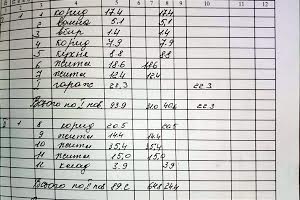 1 2 3 4 5 6 7 8 9 10 11 12
1 1 корид 17.4 17.4
2 ванна 5.1 5.1
3 вбир 1.4 1.4
4 корид 7.9 7.9
5 кухня 8.8 8.8
6 житла 18.6 18.6
7 житла 12.4 12.4
1 гараж 22.3 22.3
Всього по I пов. 93.9 31.0 40.6 22.3
1 8 корид 20.5 20.5
9 житла 14.4 14.4
10 житла 35.4 35.4
11 житла 15.0 15.0
12 3.9 3.9
Всього по II пов 89.2 64.8 24.4